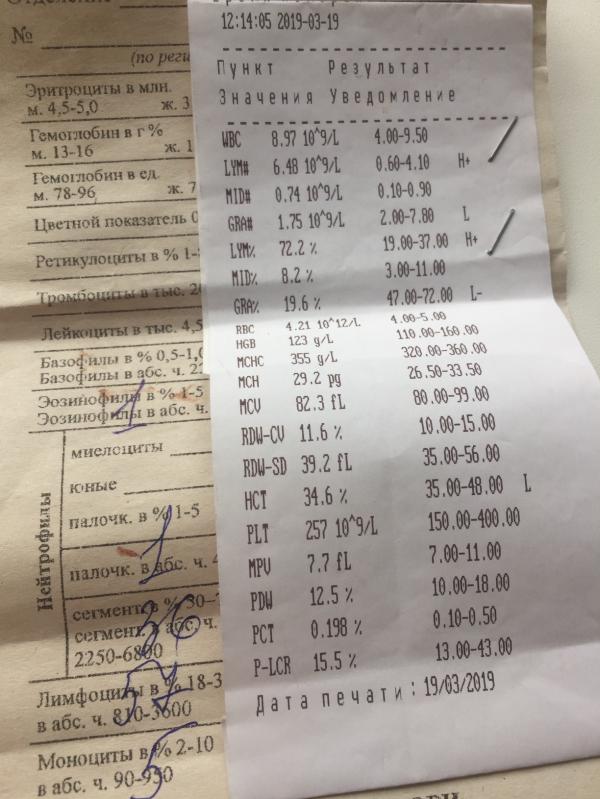 №
(по реги
Эритроциты в млн.
м. 4,5-5,0 ж. 3
Гемоглобин в г %
м. 13-16 ж. 1
Гемоглобин в ед.
м. 78-96 ж. 7
Цветной показатель 0
Ретикулоциты в % 1-
Тромбоциты в тыс. 20
Лейкоциты в тыс. 4,5
Базофилы в % 0,5-1,0
Базофилы в абс. ч. 2
Эозинофилы в % 1-5
Эозинофилы в абс. ч.
1
Нейтрофилы
миелоциты
юные
палочк. в % 1-5
палочк. в абс. ч. 4
1
сегмент в % 50-
сегмент в абс. ч.
2250-6800
36
Лимфоциты в % 18-3
в абс. ч. 810-3600
57
Моноциты в % 2-10
в абс. ч. 90-950
5
12:14:05 2019-03-19
Пункт Результат
Значения Уведомление
WBC 8.97 10^9/L 4.00-9.50
LYM# 6.48 10^9/L 0.60-4.10 H+
MID# 0.74 10^9/L 0.10-0.90
GRA# 1.75 10^9/L 2.00-7.80 L
LYM% 72.2 % 19.00-37.00 H+
MID% 8.2 % 3.00-11.00
GRA% 19.6 % 47.00-72.00 L-
RBC 4.21 10^12/L 4.00-5.00
HGB 123 g/L 110.00-160.00
MCHC 355 g/L 320.00-360.00
MCH 29.2 pg 26.50-33.50
MCV 82.3 fL 80.00-99.00
RDW-CV 11.6 % 10.00-15.00
RDW-SD 39.2 fL 35.00-56.00
HCT 34.6 % 35.00-48.00 L
PLT 257 10^9/L 150.00-400.00
MPV 7.7 fL 7.00-11.00
PDW 12.5 % 10.00-18.00
PCT 0.198 % 0.10-0.50
P-LCR 15.5 % 13.00-43.00
Дата печати: 19/03/2019